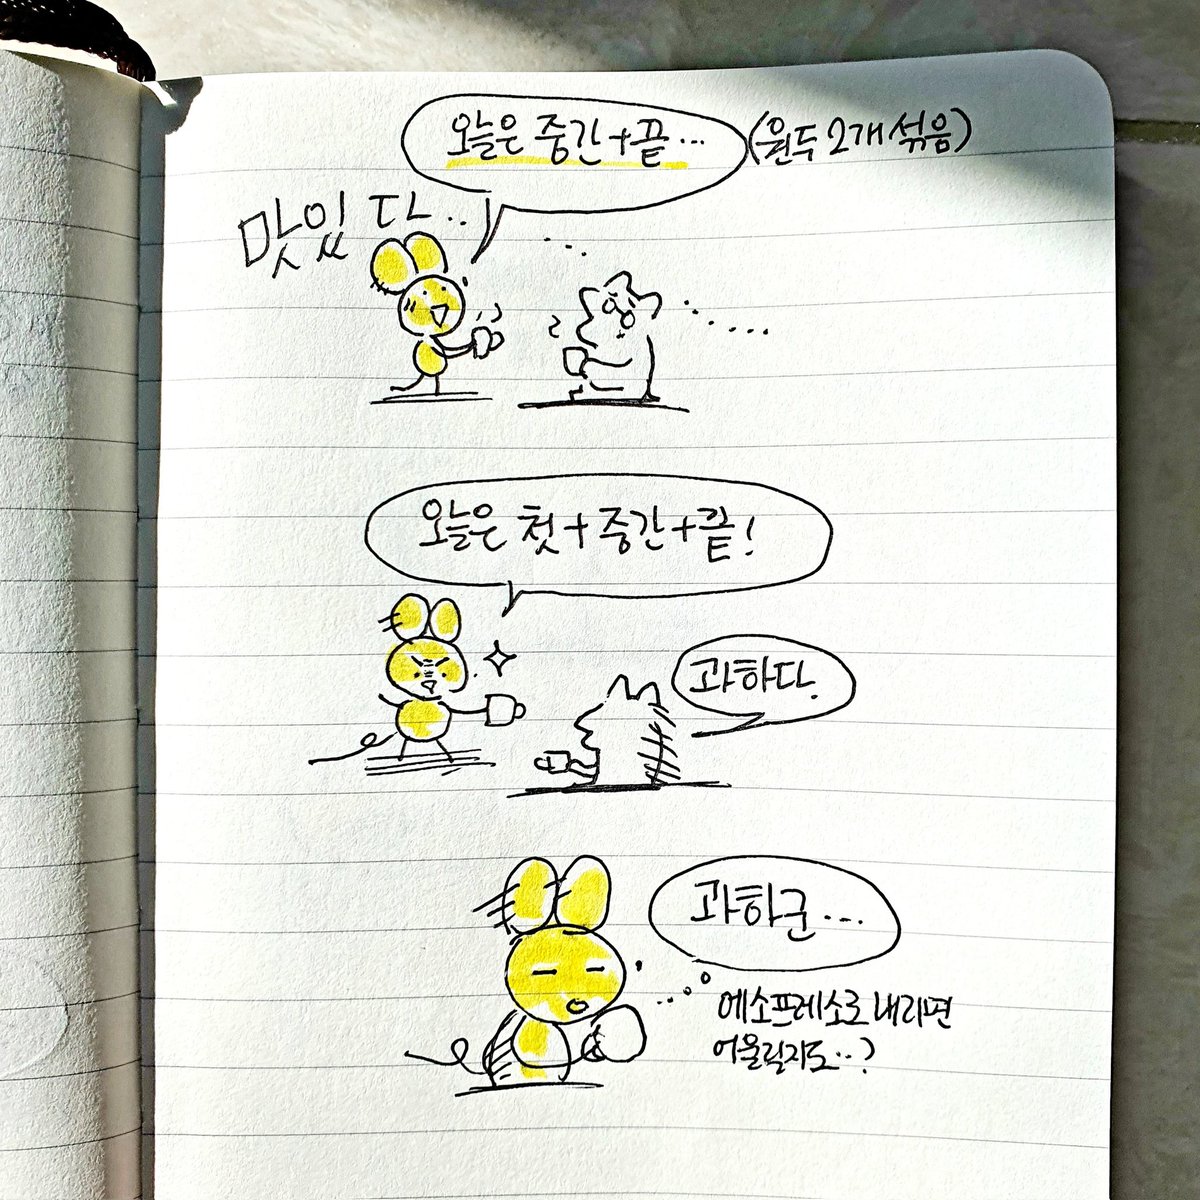 오늘은 중간+끝...
(원두 2개 섞음)
맛있다..
오늘은 첫+중간+끝!
과하다.
과하군...
에소프레소로 내리면
어울릴지도..?